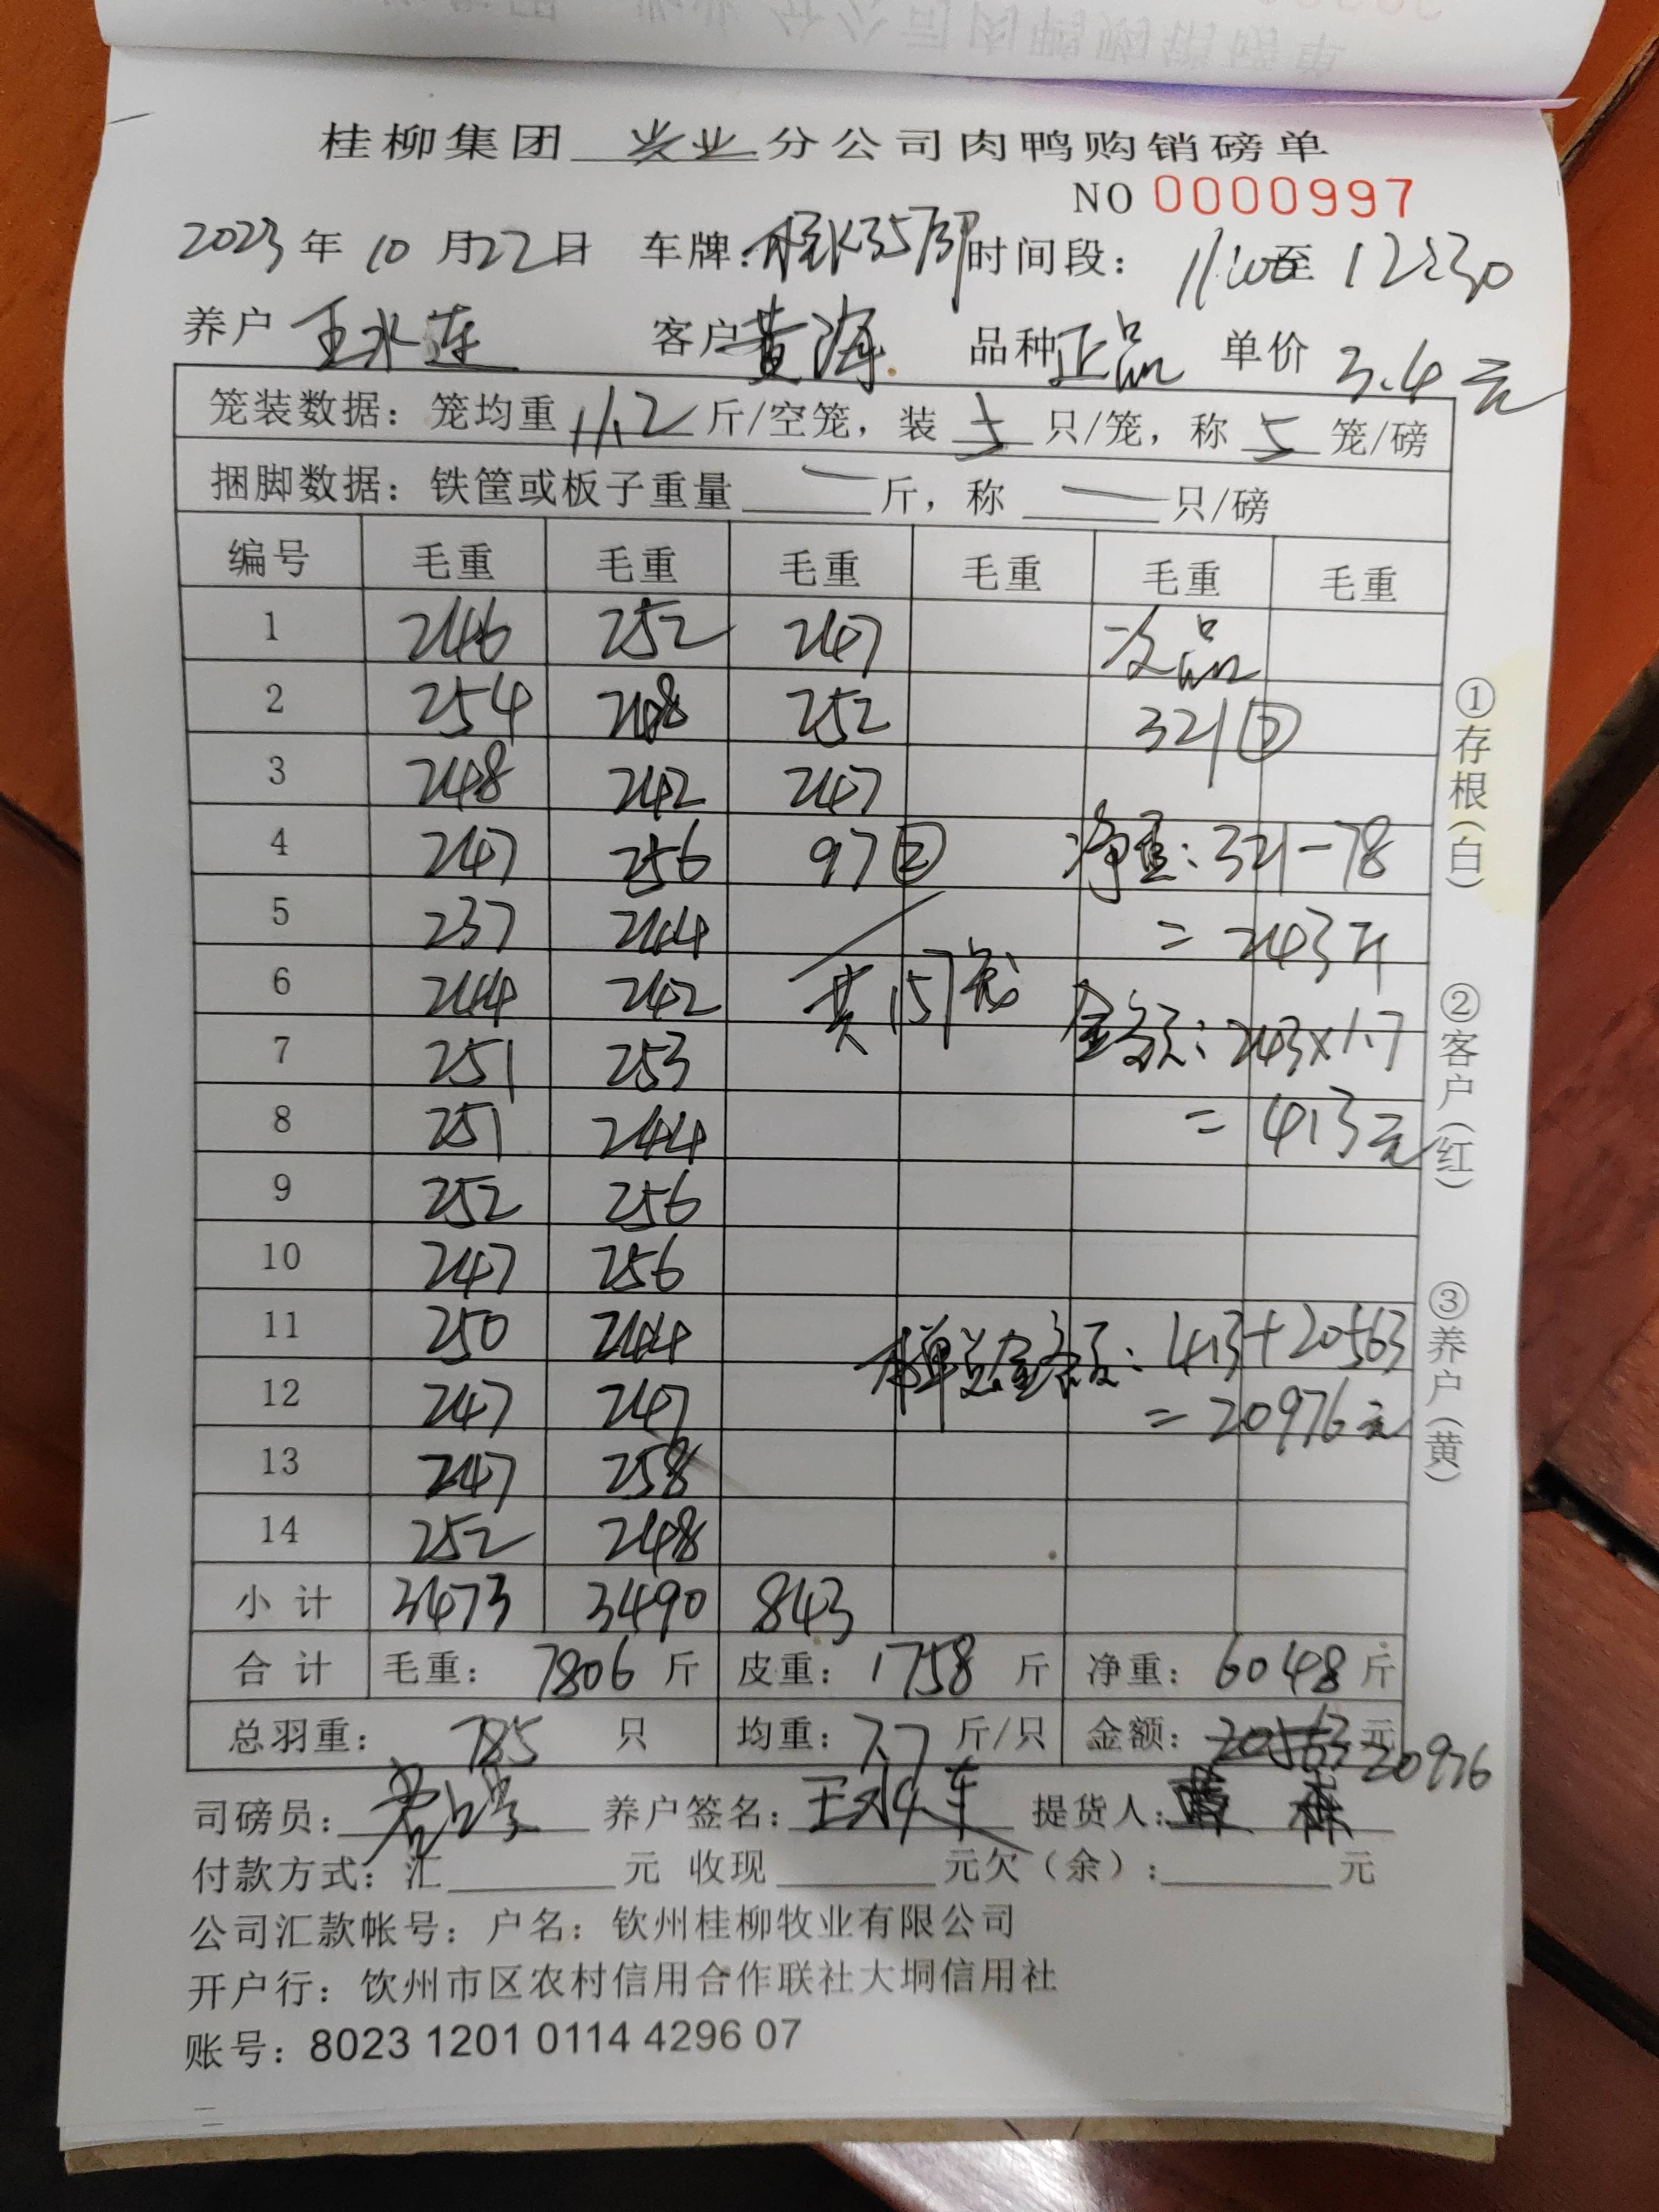 桂柳集团 兴业 分公司肉鸭购销磅单
NO 0000997
2023年 10 月22日 车牌: 时间段: 11:00至 12:30
养户 王水连 客户 黄海 品种 正品 单价 3.4元
笼装数据: 笼均重 11.2 斤/空笼, 装 5 只/笼, 称 5 笼/磅
捆脚数据: 铁筐或板子重量 — 斤, 称 — 只/磅
编号 毛重 毛重 毛重 毛重 毛重 毛重
1 246 252 247 次品
2 254 248 252 321
3 248 242 247
4 247 256 97② 净重: 321-78
5 237 244 = 243斤
6 244 242 共157笼 金额: 243×1.7
7 251 253
8 251 244 = 413元
9 252 256
10 247 256
11 250 244 本单总金额: 413+20563
12 247 247 = 20976元
13 247 258
14 252 248
小计 3473 3490 843
合计 毛重: 7806 斤 皮重: 1758 斤 净重: 6048 斤
总羽重: 785 只 均重: 7.7 斤/只 金额: 20563元 20976
司磅员: 养户签名: 王水连 提货人:
付款方式: 汇 元 收现 元欠(余): 元
公司汇款帐号: 户名: 钦州桂柳牧业有限公司
开户行: 钦州市区农村信用合作联社大垌信用社
账号: 8023 1201 0114 4296 07
①存根(白)
②客户(红)
③养户(黄)